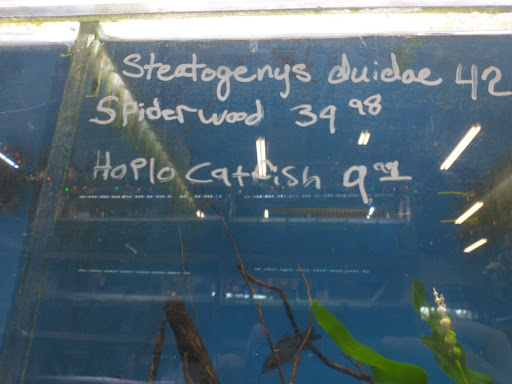 Steatogenys duidae 42
Spiderwood 39 98
Hoplo Catfish 9 99